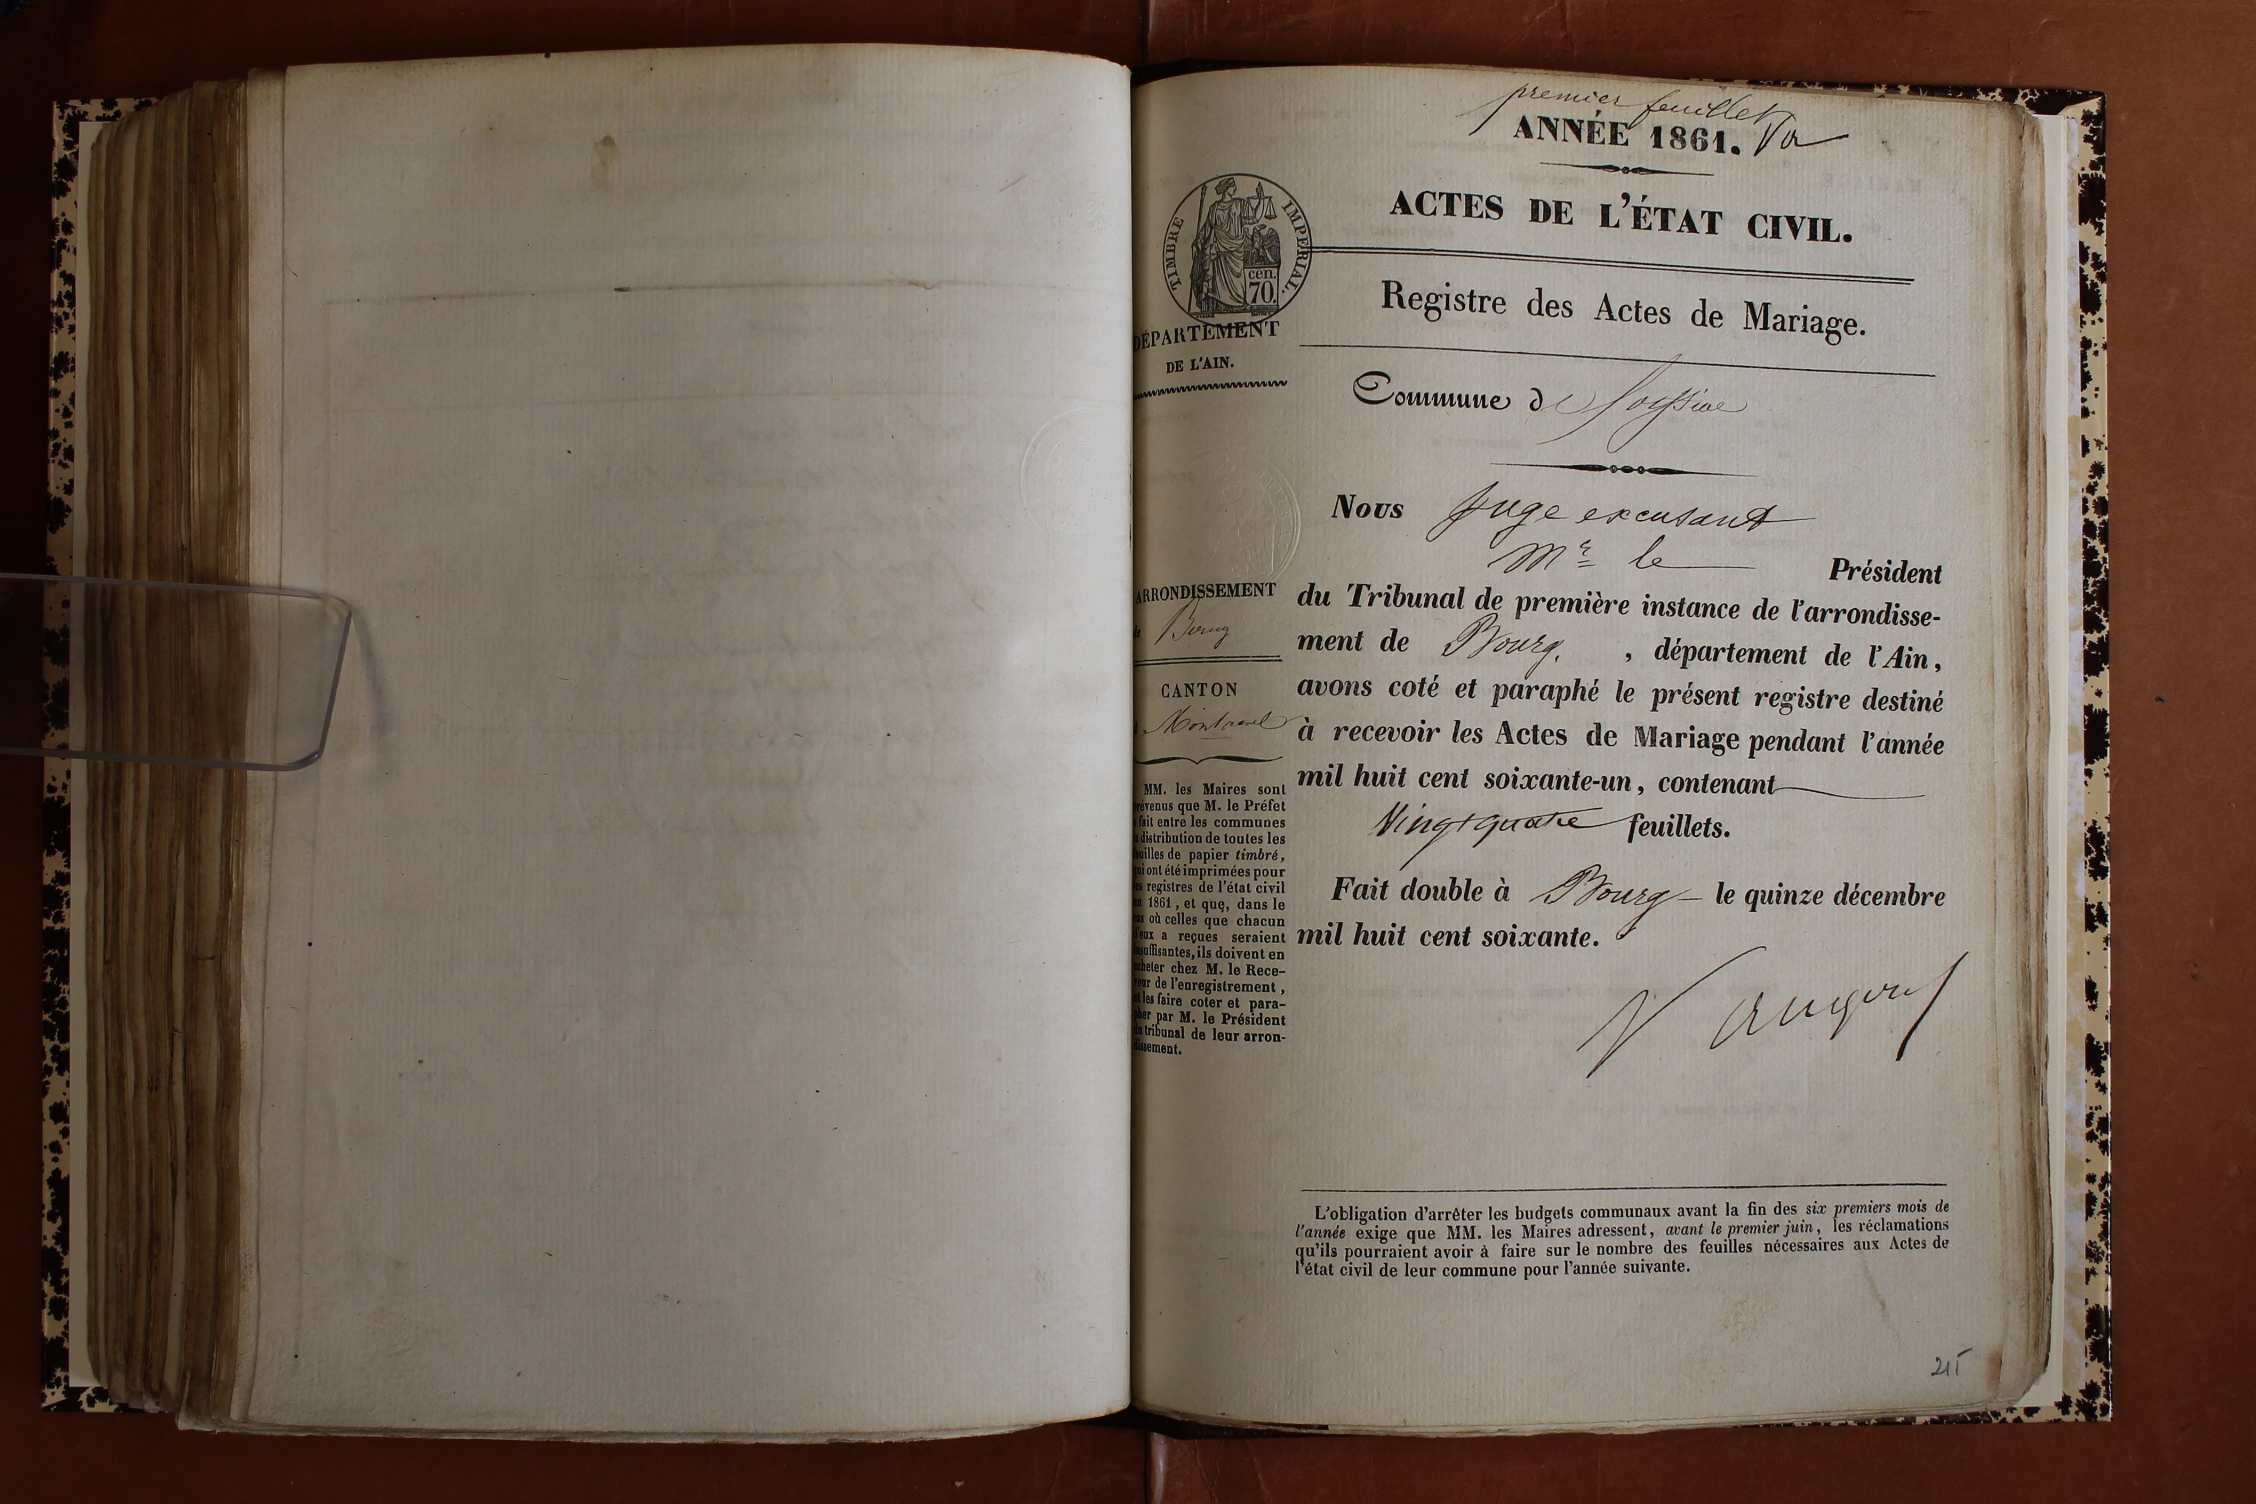 premier feuillet
ANNÉE 1861.
ACTES DE L'ÉTAT CIVIL.
TIMBRE IMPERIAL.
cen.
70.
DÉPARTEMENT
DE L'AIN.
Registre des Actes de Mariage.
Commune de
Nous Juge excusant
Mr le Président
du Tribunal de première instance de l'arrondisse-
ment de Bourg. , département de l'Ain,
avons coté et paraphé le présent registre destiné
à recevoir les Actes de Mariage pendant l'année
mil huit cent soixante-un, contenant
Vingt quatre feuillets.
Fait double à Bourg le quinze décembre
mil huit cent soixante.
ARRONDISSEMENT
de Bourg
CANTON
Montrevel
MM. les Maires sont
prévenus que M. le Préfet
fait entre les communes
distribution de toutes les
feuilles de papier timbré,
qui ont été imprimées pour
les registres de l'état civil
en 1861, et que, dans le
cas où celles que chacun
d'eux a reçues seraient
insuffisantes, ils doivent en
acheter chez M. le Rece-
veur de l'enregistrement,
et les faire coter et para-
pher par M. le Président
du tribunal de leur arron-
dissement.
L'obligation d'arrêter les budgets communaux avant la fin des six premiers mois de
l'année exige que MM. les Maires adressent, avant le premier juin, les réclamations
qu'ils pourraient avoir à faire sur le nombre des feuilles nécessaires aux Actes de
l'état civil de leur commune pour l'année suivante.
215